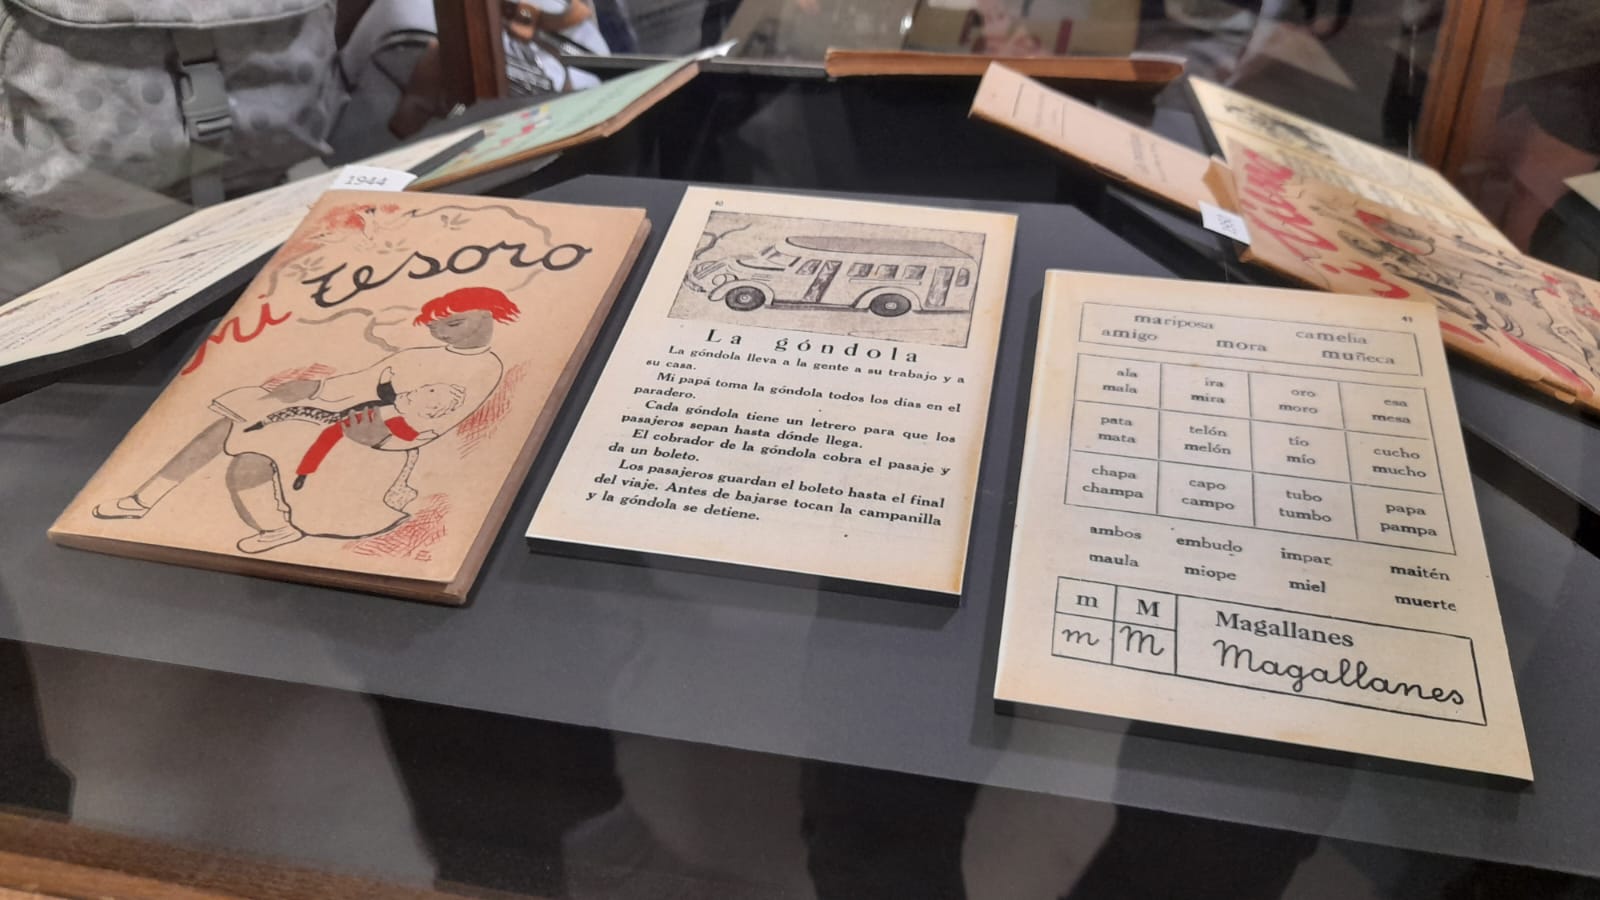 1944
mi tesoro
40
La góndola
La góndola lleva a la gente a su trabajo y a
su casa.
Mi papá toma la góndola todos los días en el
paradero.
Cada góndola tiene un letrero para que los
pasajeros sepan hasta dónde llega.
El cobrador de la góndola cobra el pasaje y
da un boleto.
Los pasajeros guardan el boleto hasta el final
del viaje. Antes de bajarse tocan la campanilla
y la góndola se detiene.
41
mariposa camelia
amigo mora muñeca
ala ira oro esa
mala mira moro mesa
pata telón tío cucho
mata melón mío mucho
chapa capo tubo papa
champa campo tumbo pampa
ambos embudo impar maitén
maula miope miel muerte
m M Magallanes
m M Magallanes